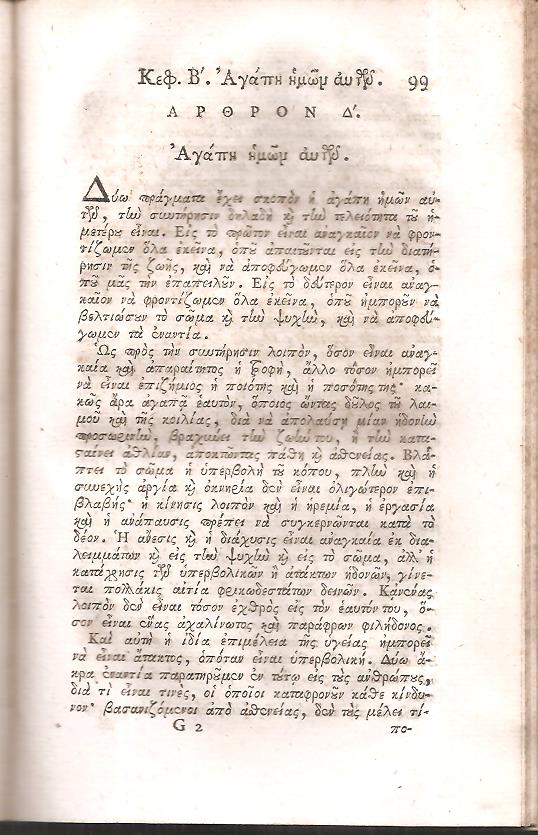 Κεφ. Β΄. Ἀγάπη ἡμῶν αὐτῶν. 99
ΑΡΘΡΟΝ Δ΄.
Ἀγάπη ἡμῶν αὐτῶν.
Δύω πράγματα ἔχει σκοπὸν ἡ ἀγάπη ἡμῶν αὐ-
τῶν, τὴν συντήρησιν δηλαδὴ ϗ τὴν τελειότητα τοῦ ἡ-
μετέρου εἶναι. Εἰς τὸ πρῶτον εἶναι ἀναγκαῖον νὰ φρον-
τίζωμεν ὅλα ἐκεῖνα, ὁποῦ ἀπαιτοῦνται εἰς τὴν διατή-
ρησιν τῆς ζωῆς, καὶ νὰ ἀποφεύγωμεν ὅλα ἐκεῖνα, ὁ-
ποῦ μᾶς τὴν ἐπαπειλοῦν. Εἰς τὸ δεύτερον εἶναι ἀναγ-
καῖον νὰ φροντίζωμεν ὅλα ἐκεῖνα, ὁποῦ ἠμποροῦν νὰ
βελτιώσουν τὸ σῶμα ϗ τὴν ψυχὴν, καὶ νὰ ἀποφεύ-
γωμεν τὰ ἐναντία.
Ὡς πρὸς τὴν συντήρησιν λοιπὸν, ὅσον εἶναι ἀναγ-
καία καὶ ἀπαραίτητος ἡ τροφὴ, ἄλλο τόσον ἠμπορεῖ
νὰ εἶναι ἐπιζήμιος ἡ ποιότης καὶ ἡ ποσότης της· κα-
κῶς ἄρα ἀγαπᾷ ἑαυτὸν, ὅποιος ὦντας δοῦλος τῆ λαι-
μοῦ καὶ τῆς κοιλίας, διὰ νὰ ἀπολαύσῃ μίαν ἡδονὴν
προσωρινὴν, βραχύνει τὴν ζωήν του, ἢ τὴν κατα-
σαίνει ἀθλίαν, ἀποκτῶντας πάθη ϗ ἀσθενείας. Βλά-
πτει τὸ σῶμα ἡ ὑπερβολὴ τοῦ κόπου, πλὴν καὶ ἡ
συνεχὴς ἀργία ϗ ὀκνηρία δὲν εἶναι ὀλιγώτερον ἐπι-
βλαβής· ἡ κίνησις λοιπὸν καὶ ἡ ἠρεμία, ἡ ἐργασία
καὶ ἡ ἀνάπαυσις πρέπει νὰ συγκερνῶνται κατὰ τὸ
δέον. Ἡ ἄνεσις ϗ ἡ διάχυσις εἶναι ἀναγκαία ἐκ δια-
λειμμάτων ϗ εἰς τὴν ψυχὴν ϗ εἰς τὸ σῶμα, ἀλλ' ἡ
κατάχρησις τῶν ὑπερβολικῶν ἢ ἀτάκτων ἡδονῶν, γίνε-
ται πολλάκις αἰτία φρικωδεστάτων δεινῶν. Κᾀνένας
λοιπὸν δὲν εἶναι τόσον ἐχθρὸς εἰς τὸν ἑαυτόν του, ὅ-
σον εἶναι ἕνας ἀχαλίνωτος καὶ παράφρων φιλήδονος.
Καὶ αὐτὴ ἡ ἰδία ἐπιμέλεια τῆς ὑγείας ἠμπορεῖ
νὰ εἶναι ἄτακτος, ὁπόταν εἶναι ὑπερβολική. Δύω ἄ-
κρα ἐναντία παρατηροῦμεν ἐν τούτῳ εἰς τοὺς ἀνθρώπους,
διὰ τὶ εἶναι τινὲς, οἱ ὁποῖοι καταφρονοῦν κάθε κίνδυ-
νον· βασανιζόμενοι ἀπὸ ἀσθενείας, δὲν τοὺς μέλει τί-
G 2 πο-